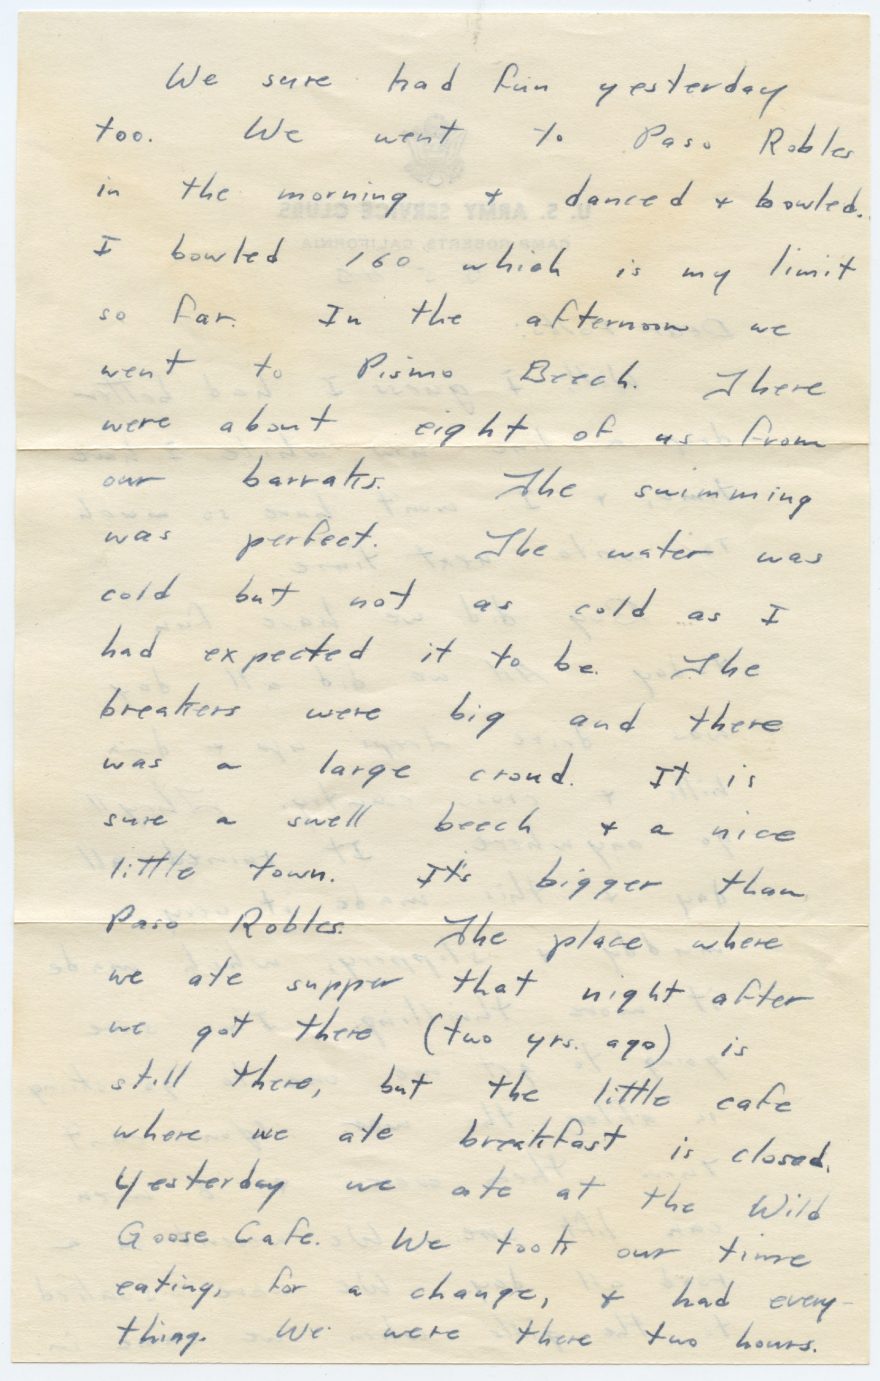 We sure had fun yesterday
too. We went to Paso Robles
in the morning + danced + bowled.
I bowled 160 which is my limit
so far. In the afternoon we
went to Pismo Beech. There
were about eight of us from
our barraks. The swimming
was perfect. The water was
cold but not as cold as I
had expected it to be. The
breakers were big and there
was a large croud. It is
sure a swell beech + a nice
little town. It's bigger than
Paso Robles. The place where
we ate supper that night after
we got there (two yrs. ago) is
still there, but the little cafe
where we ate breakfast is closed.
Yesterday we ate at the Wild
Goose Cafe. We took our time
eating, for a change, + had every-
thing. We were there two hours.
U. S. ARMY SERVICE CLUBS
CAMP ROBERTS, CALIFORNIA